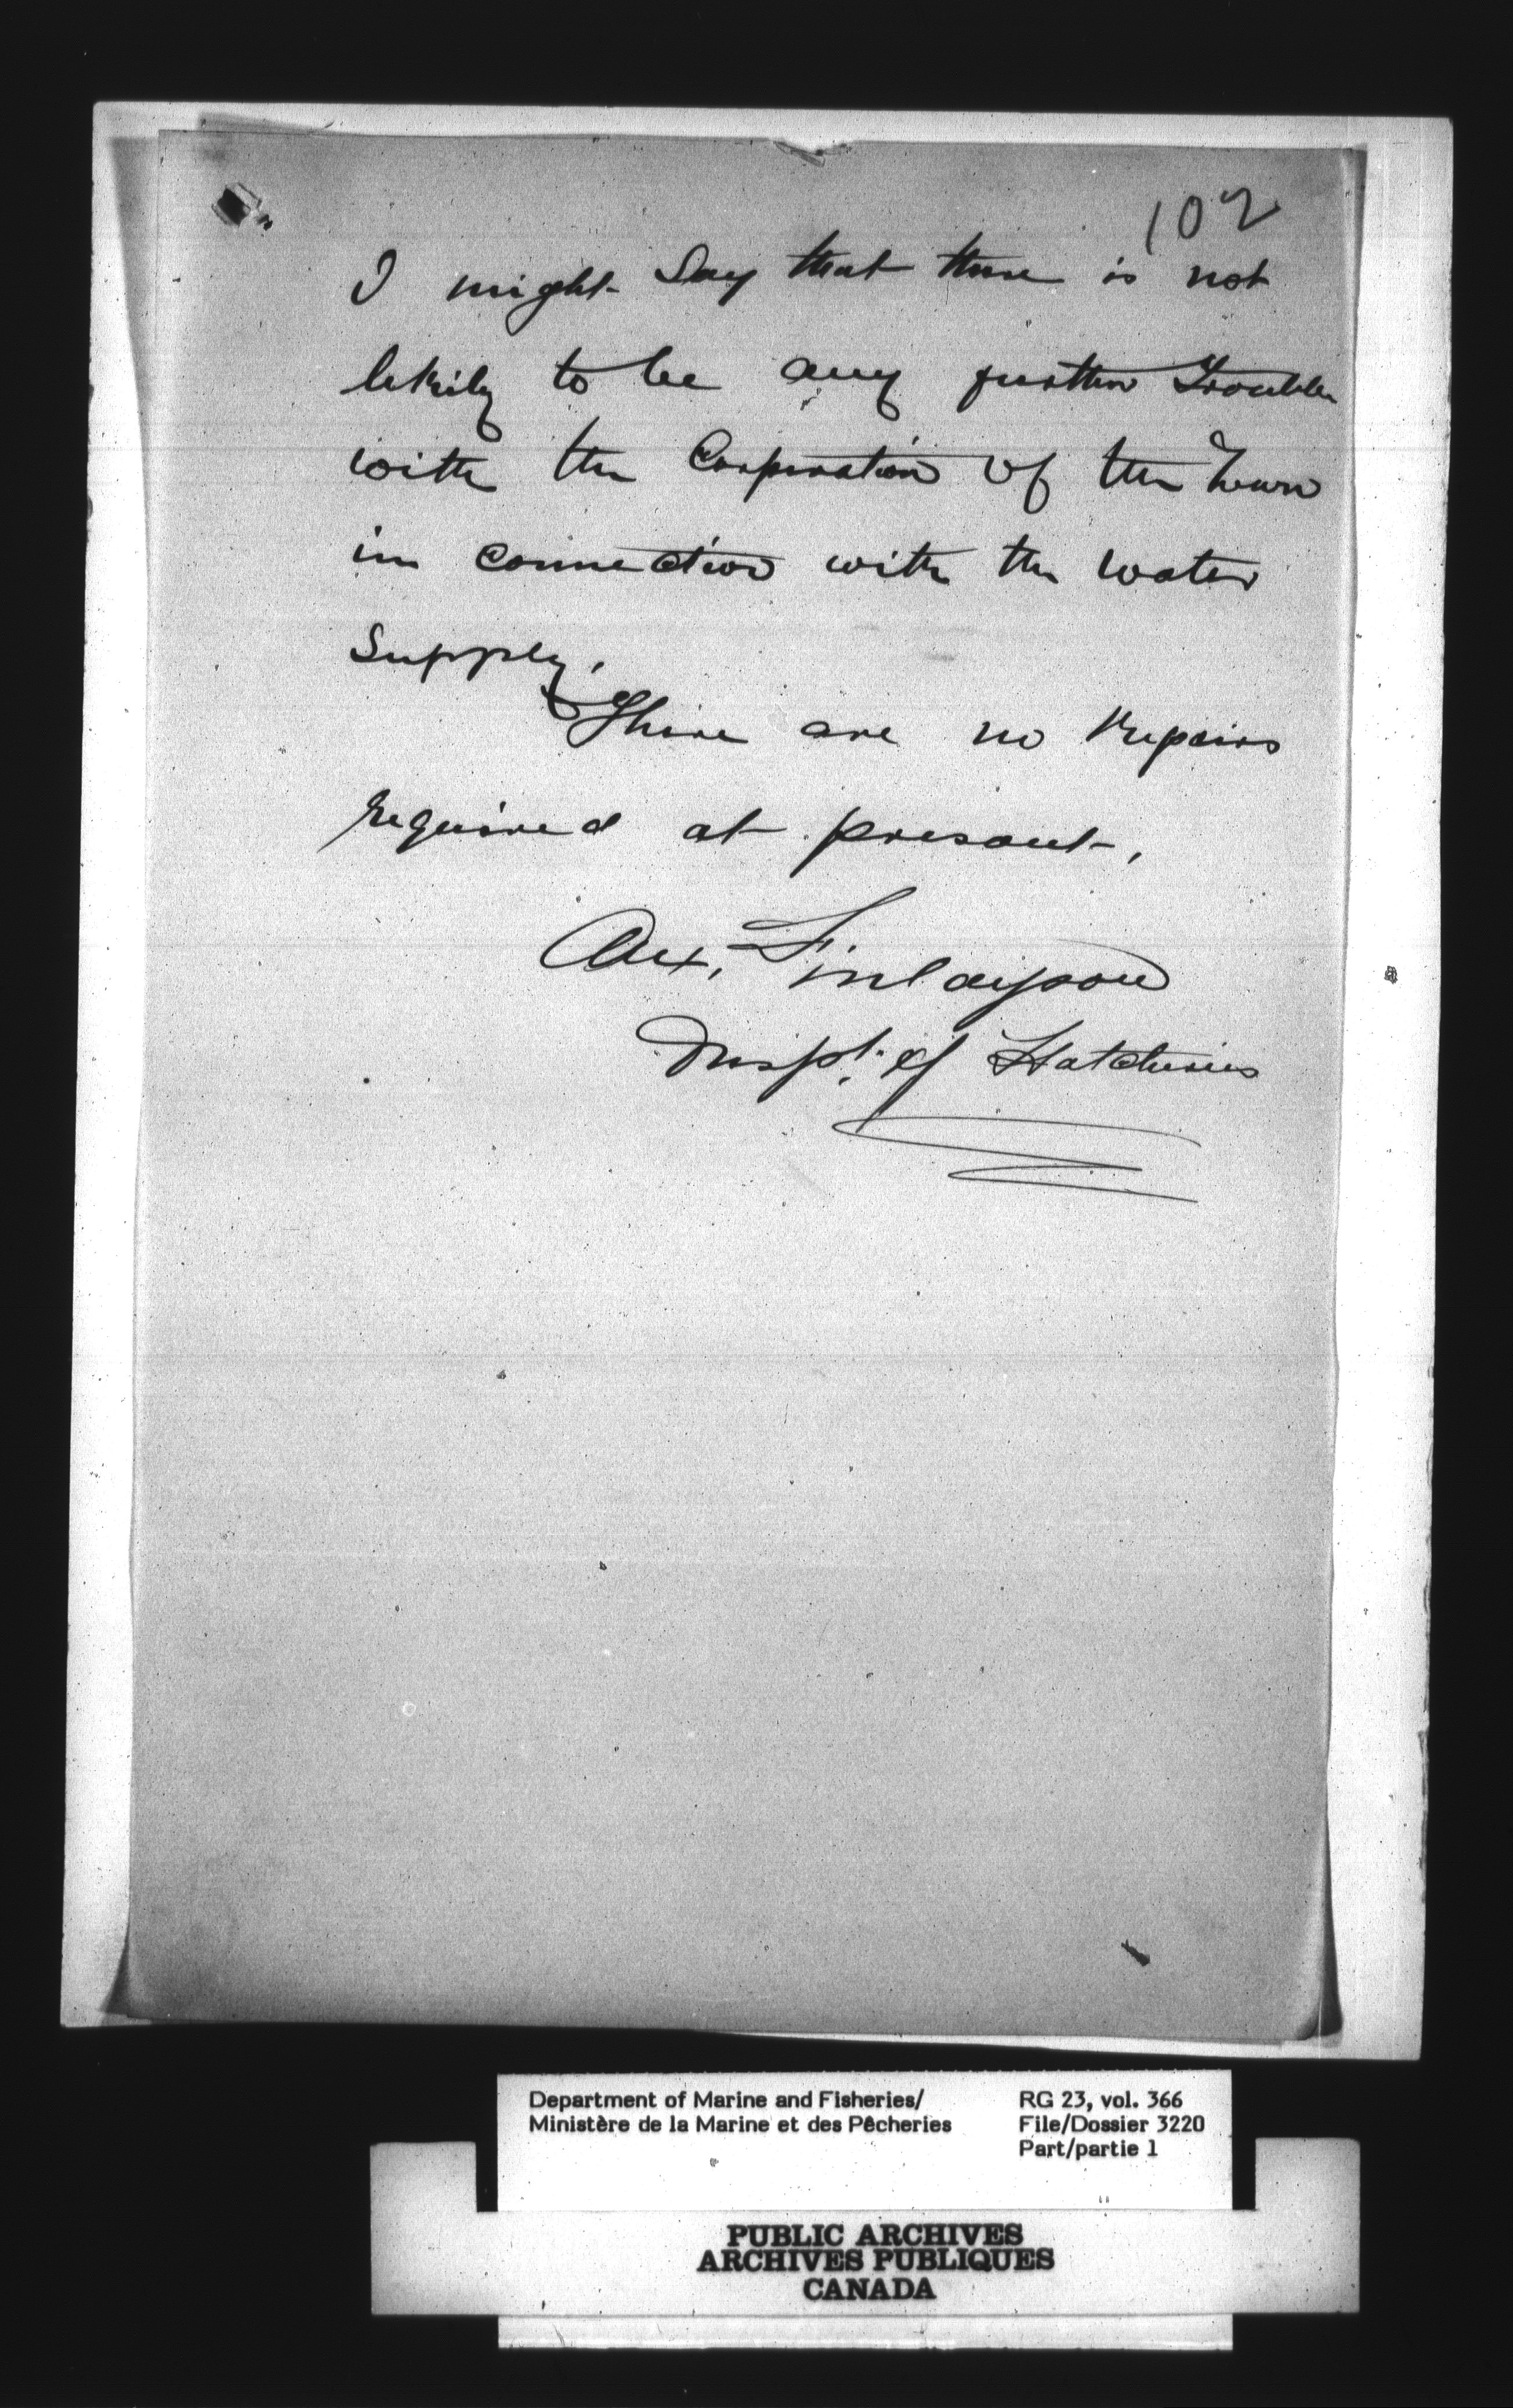 102
I might Say that there is not
likily to be any further Trouble
with the Corporation of the Town
in connection with the water
Supply.
There are no Repairs
required at present,
Alex. Finlayson
Inspt. of Hatcheries
Department of Marine and Fisheries/ RG 23, vol. 366
Ministère de la Marine et des Pêcheries File/Dossier 3220
Part/partie 1
PUBLIC ARCHIVES
ARCHIVES PUBLIQUES
CANADA